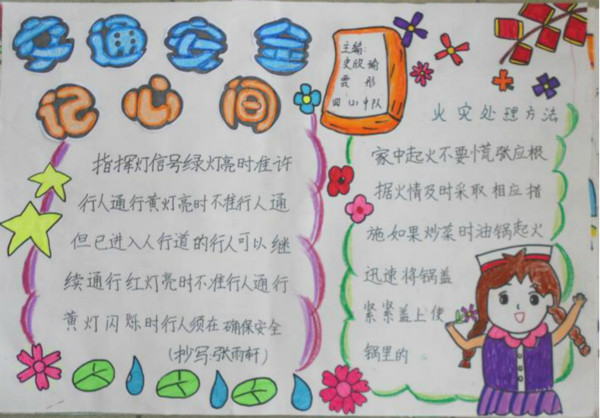 交通安全
记心间
指挥灯信号绿灯亮时准许
行人通行黄灯亮时不准行人通
但已进入人行道的行人可以继
续通行红灯亮时不准行人通行
黄灯闪烁时行人须在确保安全
(抄写:张雨轩)
主编:
史欣瑜
四(1)中队
火灾处理方法
家中起火不要慌张应根
据火情及时采取相应措
施如果炒菜时油锅起火
迅速将锅盖
紧紧盖上使
锅里的